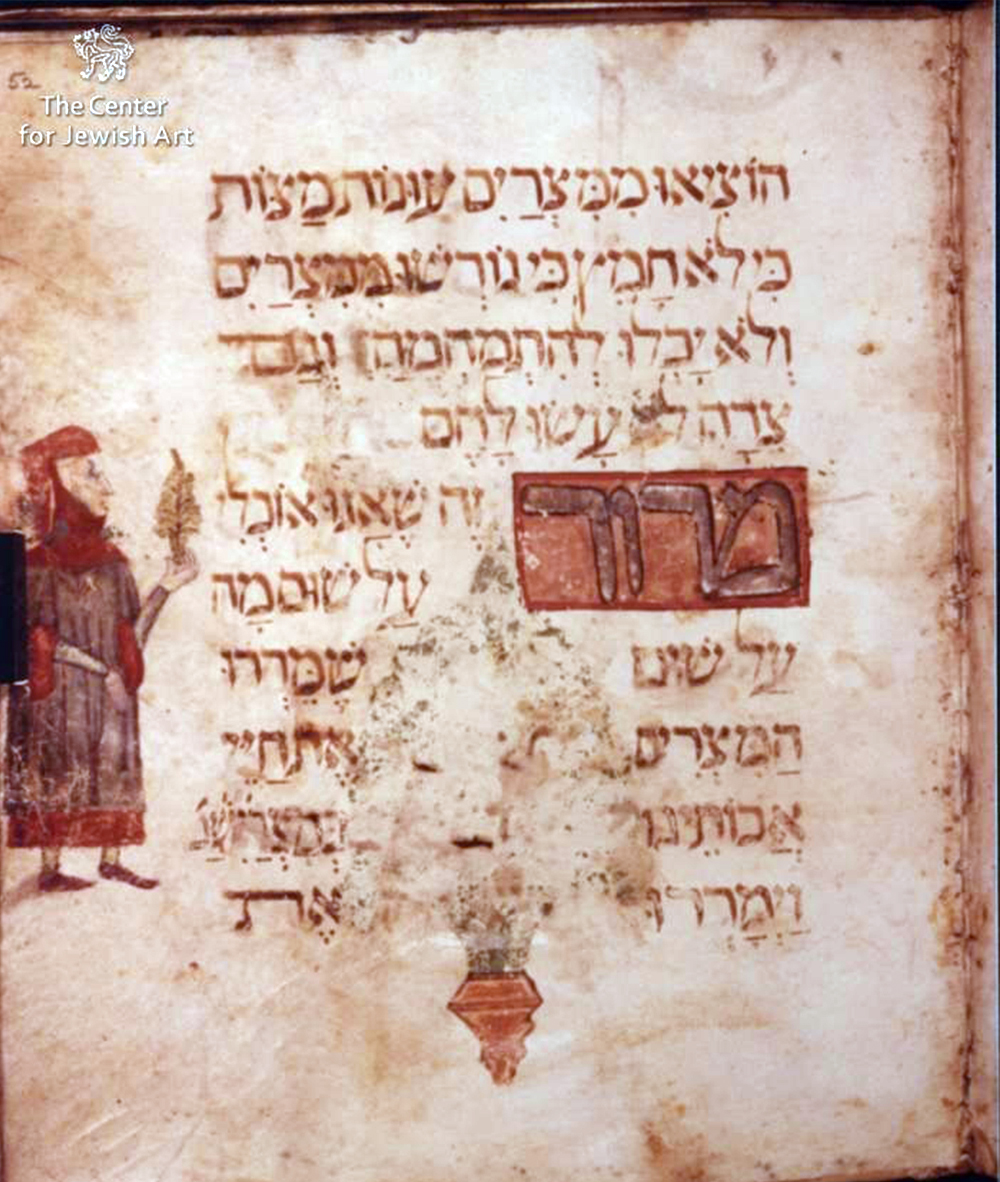 52
The Center
for Jewish Art
הוציאו ממצרים עוגות מצות
כי לא חמץ כי גורשו ממצרים
ולא יכלו להתמהמה וגם
צדה לא עשו להם
מרור זה שאנו אוכלי
על שום מה
על שום שמררו
המצרים את חיי
אבותינו במצרים שנ
וימררו את